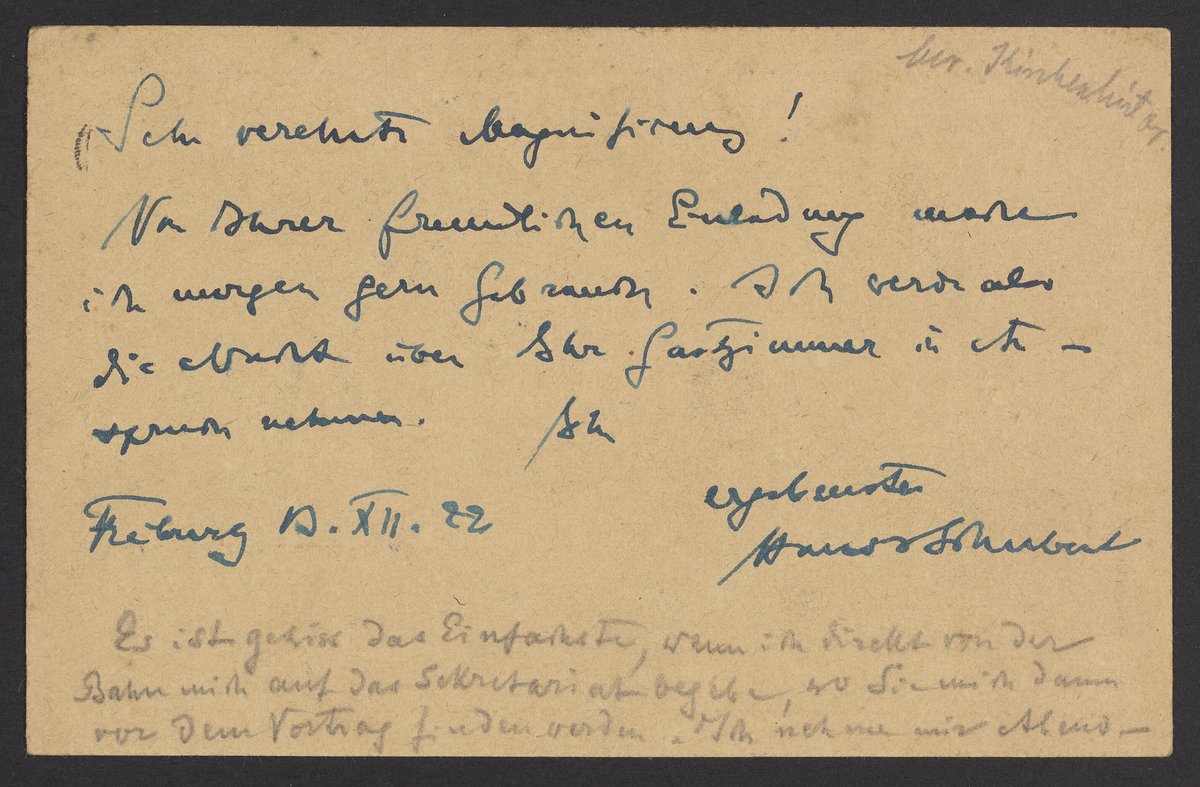 Sehr verehrte Magnifizenz!
Von Ihrer freundlichen Einladung mache
ich morgen gern Gebrauch. Ich werde also
die Nacht über Ihr Gastzimmer in An-
spruch nehmen. Ihr
ergebenster
Freiburg 13. XII. 22
Hans Schubert
Es ist gewiss das Einfachste, wenn ich direkt von der
Bahn mich auf das Sekretariat begebe, wo Sie mich dann
vor dem Vortrag finden werden. Ich nehme mir Abend-